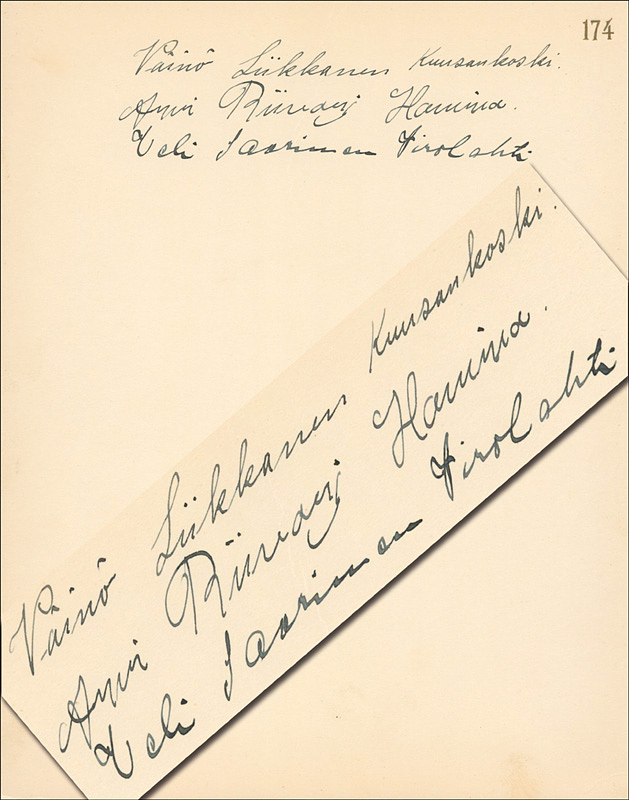 174
Väinö Liikkanen Kuusankoski.
Arvi Hamina.
Veli Saarinen Virolahti
Väinö Liikkanen Kuusankoski.
Arvi Hamina.
Veli Saarinen Virolahti